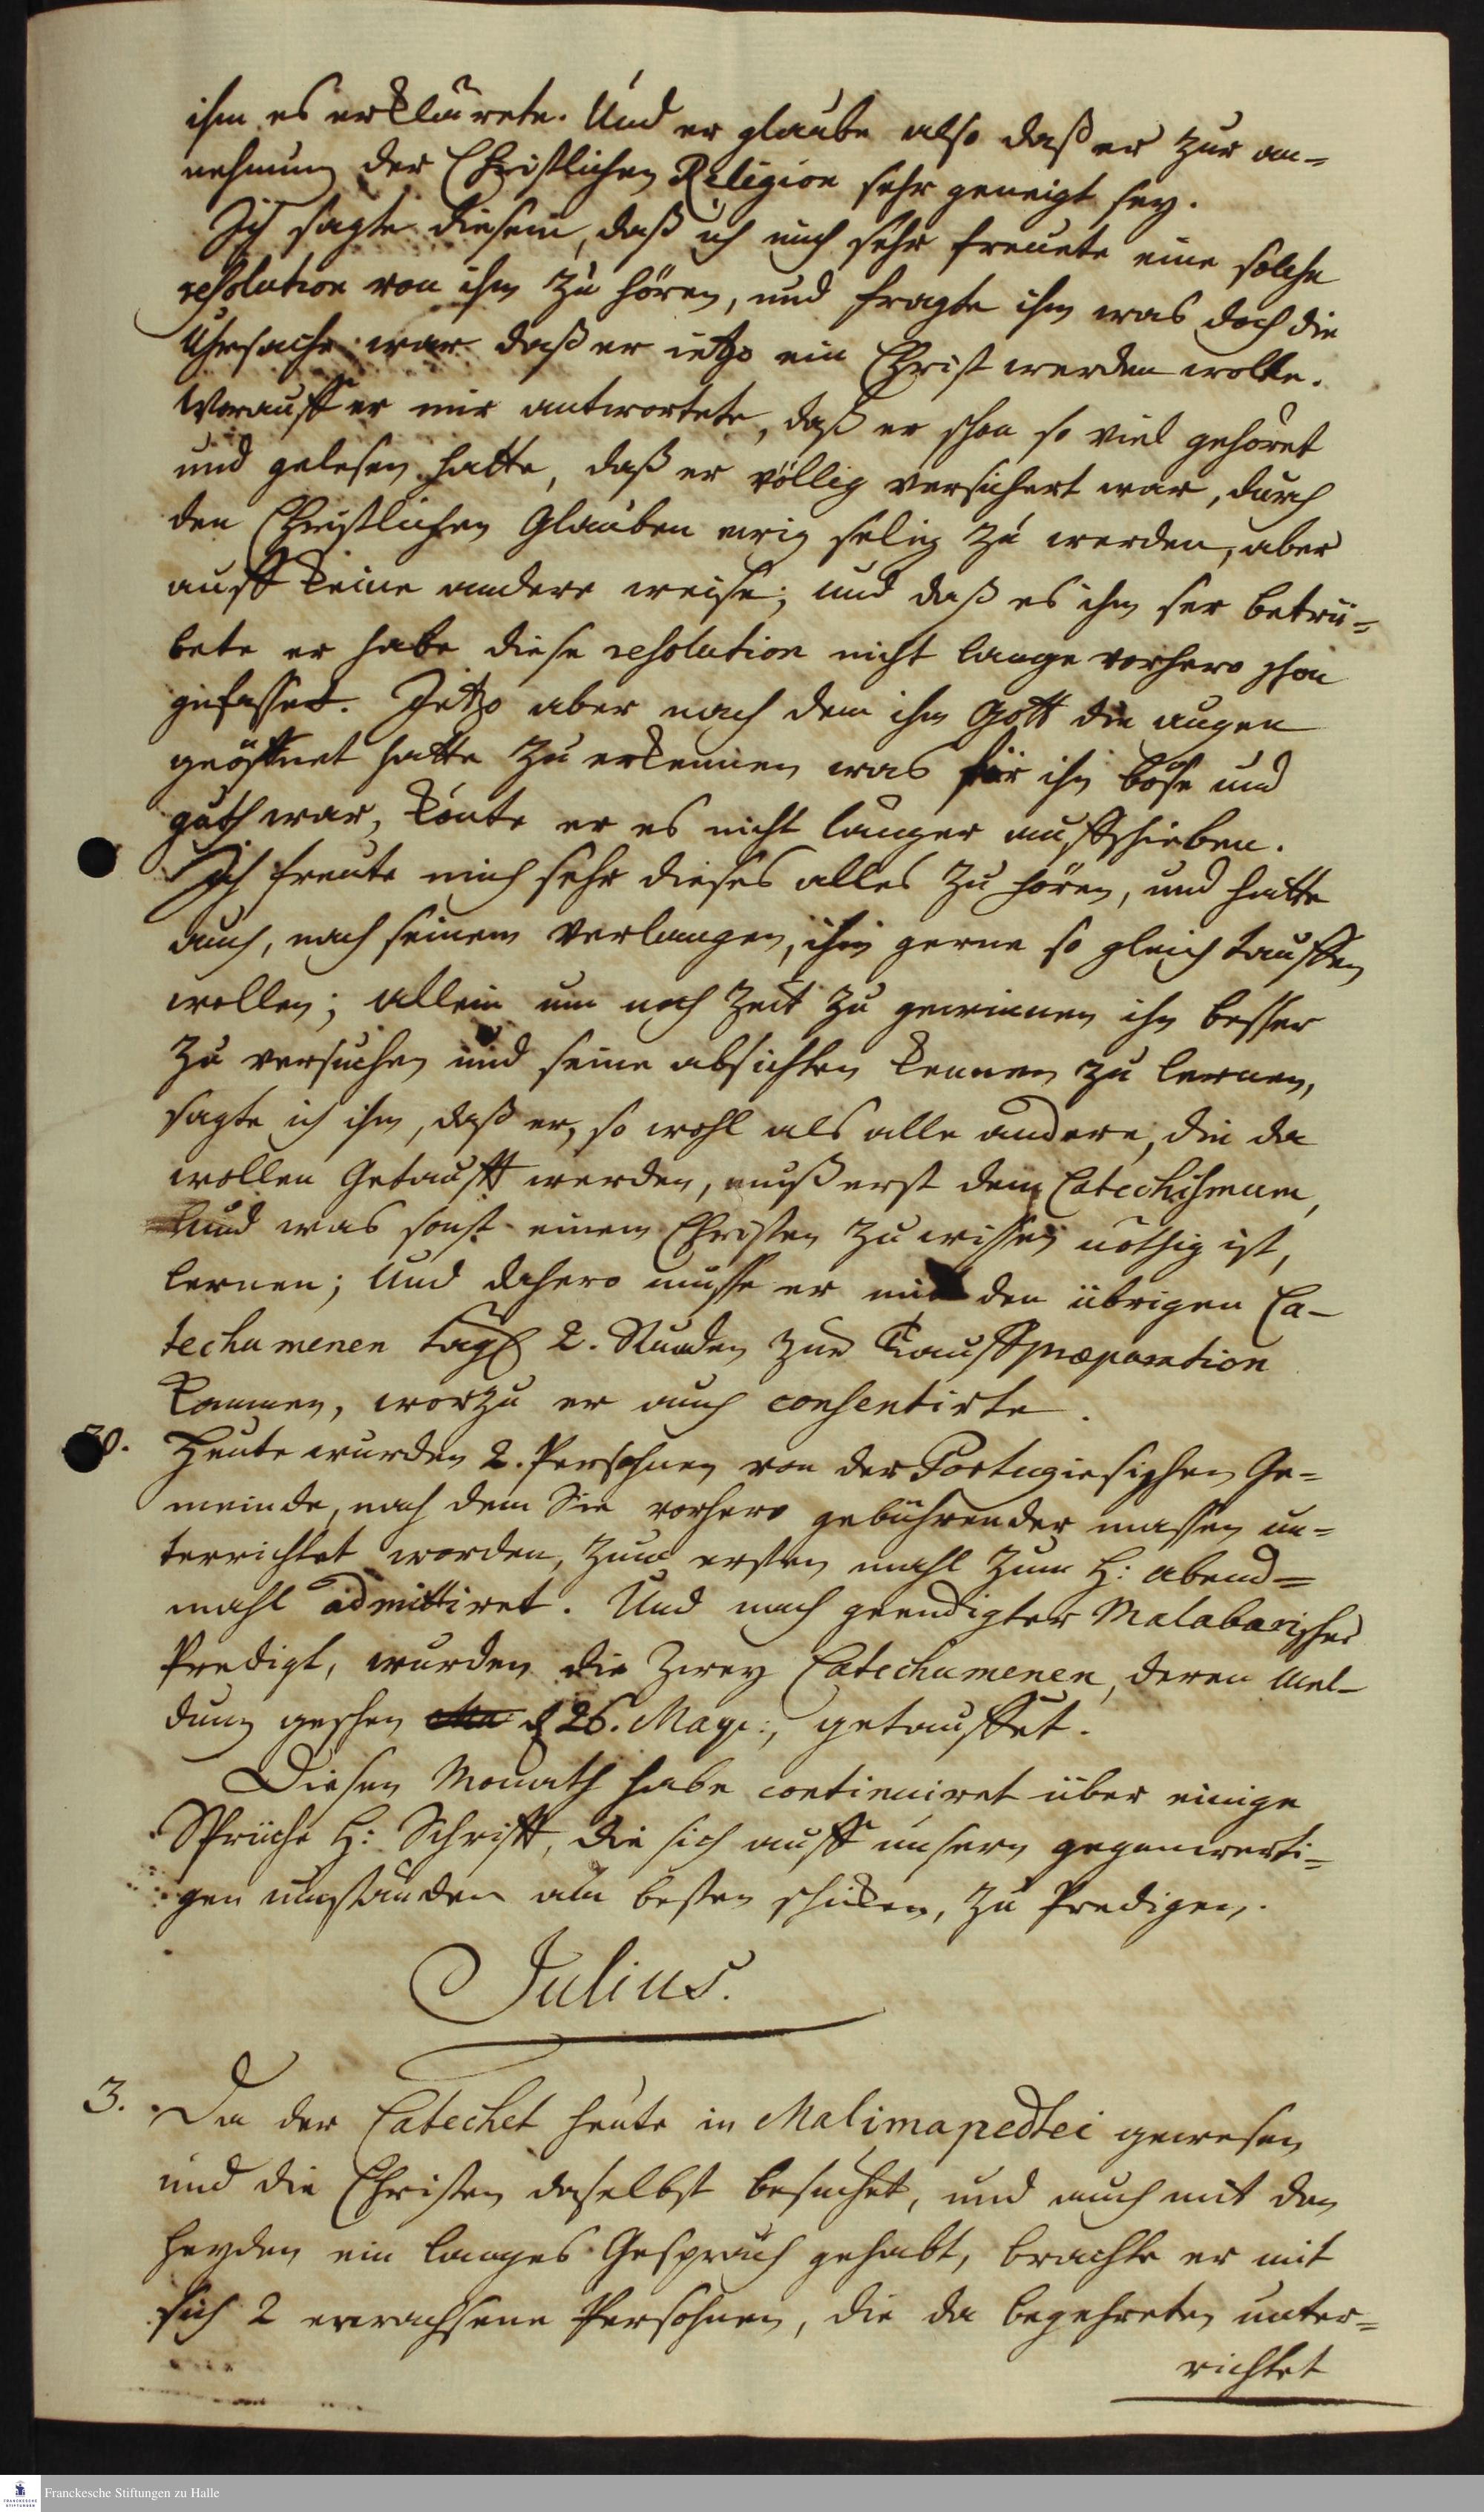 ihm es erklärete. Und er glaube also daß er zur an-
nehmung der Christlichen Religion sehr geneigt sey.
Ich sagte diesem, daß ich mich sehr freuete eine solche
resolution von ihm zu hören, und fragte ihm was doch die
Uhrsache war daß er ietzo ein Christ werden wolte.
Worauff er mir antwortete, daß er schon so viel gehöret
und gelesen hatte, daß er völlig versichert war, durch
den Christlichen Glauben ewig selig zu werden, aber
auff keine andere weise; und daß es ihm ser betrü-
bete er habe diese resolution nicht lange vorhero schon
gefasset. Jetzo aber nach dem ihm Gott die augen
geöffnet hatte zu erkennen was für ihn böse und
guth war, könte er es nicht länger auffschieben.
Ich freute mich sehr dieses alles zu hören, und hätte
auch, nach seinem verlangen, ihm gerne so gleich tauffen
wollen; allein um noch Zeit zu gewinnen ihn besser
zu versuchen und seine absichten kennen zu lernen,
sagte ich ihm, daß er, so wohl als alle andere, die da
wollen Getaufft werden, muß erst den Catechismum,
und was sonst einem Christen zu wissen nöthig ist,
lernen; Und dahero müsse er mit den übrigen Ca-
techumenen tägl 2. Stunden zur Tauffpræparation
kommen, worzu er auch consentirte.
30. Heute wurden 2. Persohnen von der Portugiesischen Ge-
meinde, nach dem Sie vorhero gebührender massen un-
terrichtet worden, zum ersten mahl zum H: abend-
mahl admittiret. Und nach geendigter Malabarischer
Predigt, wurden die Zwey Catechumenen, deren Mel-
dung geschen d 26. Maye:, getauffet.
Diesen Monath habe continuiret über einige
Sprüche H: Schrifft, die sich auff unsern gegenwerti-
gen umständen am besten schicken, zu Predigen.
Julius.
3. Da der Catechet heute in Malimapedtei gewesen
und die Christen daselbst besuchet, und auch mit den
Heyden ein langes Gespräch gehabt, brachte er mit
sich 2 erwachsene Persohnen, die da begehreten unter-
richtet
Franckesche Stiftungen zu Halle